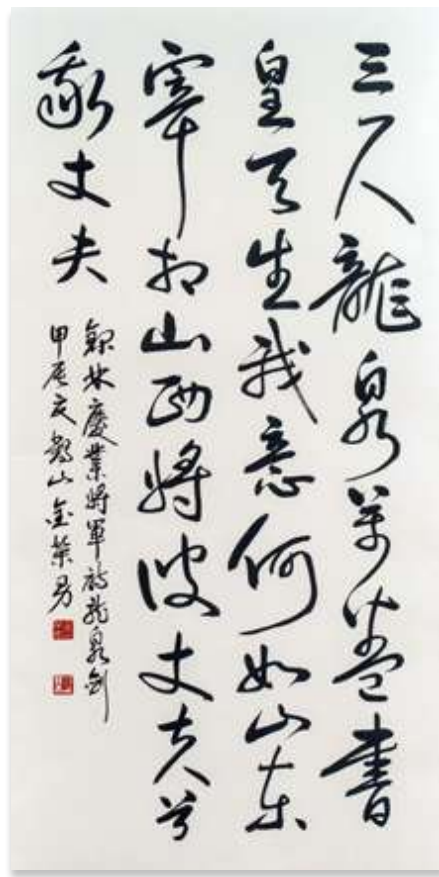 三尺龍泉萬卷書
皇天生我意何如山東
宰相山西將彼丈夫兮
我丈夫
錄林慶業將軍詩龍泉劍
甲辰夏 山金